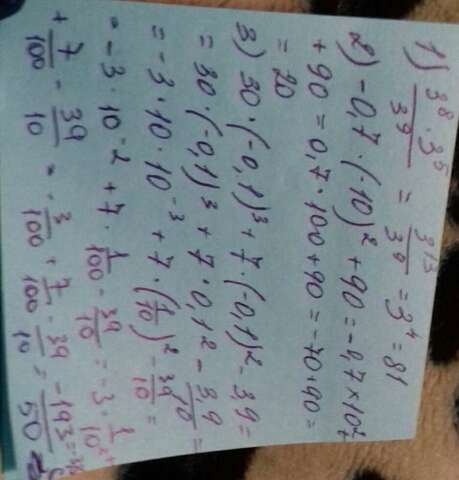 1) 3⁸·3⁵ / 3⁹ = 3¹³ / 3⁹ = 3⁴ = 81
2) -0,7·(-10)² + 90 = -0,7×10²
+ 90 = 0,7·100+90 = -70+90 =
= 20
3) 30·(-0,1)³ + 7·(-0,1)² - 3,9 =
= 30·(-0,1)³ + 7·0,1² - 3,9 =
= -3·10·10⁻³ + 7·(1/10)² - 39/10 =
= -3·10⁻² + 7·1/100 - 39/10 = -3·1/10² +
+ 7/100 - 39/10 = -3/100 + 7/100 - 39/10 = -193/50 =